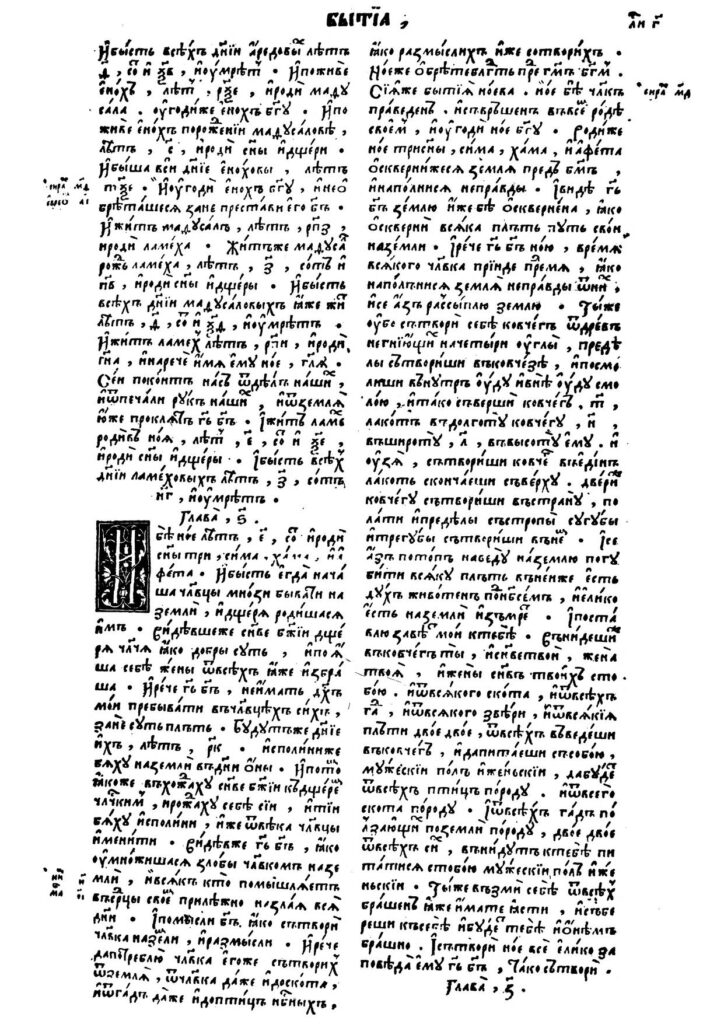 БЫТІ́А,
и҆бысть всѣ́хъ дні́и а҆редовы́ лѣ́тъ
и҆оу҆мрѣ́тъ · и҆поживѐ
є҆но́хъ, лѣ́тъ, и҆родѝ маду
сала. оу҆годи́же є҆но́хъ бг҃у и҆по
живѐ є҆но́хъ порожені́и мадусаловѣ,
лѣ́тъ, с҃, и҆родѝ сн҃ы и҆дщери.
и҆бы́ша всѝ дні́е є҆но́ховы, лѣ́тъ
т҃ѯе · и҆оу҆годѝ є҆но́хъ бг҃у, и҆не о҆
брѣта́шеся занѐ преста́ви є҆го̀ бг҃ъ ·
и҆жи́тъ мадуса́лъ, лѣ́тъ, рп҃з,
и҆родѝ ламе́ха · жи́тъже мадуса́
рожъ ламе́ха, лѣ́тъ, ѱ҃, со́тъ и҆
пв҃, и҆родѝ сн҃ы и҆дще́ры · и҆бы́сть
всѣ́хъ дні́и мадусаловыхъ ꙗ҆́же жѝ
лѣ́тъ, и҆оу҆мрѣ́тъ ·
и҆жи́тъ ламе́хъ лѣ́тъ, рп҃и, и҆родѝ
сн҃а, и҆нарече́ и҆́мя є҆мꙋ̀ но́е, гл҃я ·
се́и поко́итъ на́съ ѿдѣ́лъ на́ши,
и҆ѿпеча́ли рꙋ́къ на́ши, и҆ѿземля̀
ю҆́же прокля́тъ гь҃ бг҃ъ · и҆жи́тъ ламе́
роди́въ но́я, лѣ́тъ,
и҆родѝ сн҃ы и҆дще́ры · и҆бы́сть всѣ́х
дні́и ламе́ховыхъ лѣ́тъ, ѱ҃, со́тъ
и҆оу҆мрѣ́тъ ·
Глава̀, ѕ҃.
И
бѣ̀ но́е лѣ́тъ, е҃, со́ и҆родѝ
сн҃ы три, си́ма, ха́ма, и҆а҆
фе́та · и҆бы́сть є҆гда̀ нача́
ша чл҃вцы мно́зи быва́ти на
землѝ, и҆дще́ря роди́шася
и҆́мъ · ви́дѣвшеже сн҃ве бж҃іи дще́
ря чл҃чя ꙗ҆́ко добры̀ сꙋ́ть, и҆поя́
ша себѣ̀ жены̀ ѿвсѣ́хъ ꙗ҆́же и҆збра́
ша · и҆речѐ гь҃ бг҃ъ, неи́мать дх҃ъ
мо́и пребыва́ти въчл҃вцѣхъ си́хъ,
занѐ сꙋть плѣть · бꙋ́дꙋтъже дні́е
и҆́хъ, лѣ́тъ, рк҃ · и҆сполиниже
бя́хꙋ наземлѝ въдни о҆́ны · и҆пото́
ꙗ҆́коже въхожа́хꙋ сн҃ве бж҃іи къдще́ре
чл҃чкимъ, и҆рожа́хꙋ себѣ̀ сі́и, и҆ті́и
бя́хꙋ и҆сполини, и҆́же ѿвѣ́ка чл҃вцы
и҆мени́ти · ви́дѣвже гь҃ бг҃ъ, ꙗ҆́ко
оу҆мно́жишася зло́бы чл҃вкомъ назе
млѝ, и҆вся́къ кто̀ помышля́етъ
въ́рцы свое́ прилѣ́жно назла́я вся̀
дни · и҆помы́сли бг҃ъ ꙗ҆́ко сътворѝ
чл҃вка наземлѝ, и҆размы́сли · и҆речѐ
дапотреблю̀ чл҃вка є҆го́же сътвори́х
ѿземля̀, ѿчл҃вка да́же и҆доскота̀,
и҆ѿга́дъ да́же и҆допти́цъ нб҃ныхъ,
ꙗ҆́ко размы́слихъ и҆́же сотвори́хъ ·
но́еже о҆брѣ́те благода́ть пре́ гм҃ъ бг҃мъ ·
сі́яже бытія̀ но́ева · но́е бѣ̀ чл҃къ
пра́веденъ · и҆съвръше́нъ въвсе́ ро́дѣ
свое́мъ, и҆оу҆годѝ но́е бг҃ꙋ · роди́же
но́е три сны, си́ма, ха́ма, и҆а҆фе́та
о҆скверни́жеся земля̀ пре́дъ бг҃мъ,
и҆напо́лнися непра́вды · и҆ви́дѣ гь҃
бг҃ъ зе́млю и҆́же бѣ̀ о҆скверне́на, ꙗ҆́ко
о҆скверни̏ вся́ка плѣть пꙋ́ть сво́и
наземлѝ · и҆речѐ гь҃ бг҃ъ но́ю, вре́мя
вся́кого чл҃вка прі́иде пре́мя, ꙗ҆́ко
напо́лнися земля̀ непра́вды ѿни́,
и҆се а҆́зъ разсы́плю зе́млю · ты́же
оу҆̀бо сътворѝ себѣ̀ ковче́гъ ѿдре́въ
негнію́щи начеты́ри оу҆́глы, предѣ́
лы сътвори́ши въковче́зѣ, и҆посмо́
лиши вънꙋ́трь оу҆́дꙋ и҆внѣ̀ оу҆́дꙋ смо
ло́ю, и҆та́ко съвершѝ ковче́гъ. т҃,
лако́тъ въдолготꙋ̀ ковче́гꙋ, и҆, н҃,
въширотꙋ̀, л҃, въвысотꙋ̀ є҆мꙋ̀. и҆
оу҆зя̀, сътвори́ши ковче́ въеди́нъ
ла́коть сконча́еши съве́рхꙋ. две́ри
ковче́гꙋ сътвори́ши въстранꙋ̀, по
ла́ти и҆предѣ́лы състро́пы сꙋгꙋ́бы
и҆трегꙋ́бы сътвори́ши въне́ · и҆се
а҆́зъ пото́пъ наведꙋ̀ наземлю погꙋ
би́ти вся́кꙋ плѣть вънейже є҆сть
дꙋ́хъ живо́тенъ по́ нб҃семъ, и҆є҆ли́ко
є҆́сть наземлѝ и҆зъмре́ · и҆поста́
влю завѣ́ мо́и ктебѣ̀ · въни́деши
въковче́гъ ты̀, и҆сн҃ве твоѝ, жена̀
твоя̀, и҆жены̀ сн҃въ твои́хъ сто
бо́ю. и҆ѿвся́кого скота̀, и҆ѿвсѣ́хъ
га́, и҆ѿвся́кого звѣ́ри, и҆ѿвся́кія
плъ́ти дво́е дво́е, ѿвсѣ́хъ въведе́ши
въковче́гъ, и҆дапита́еши съсобо́ю,
мꙋ́жескіи по́лъ и҆же́ньскіи, дабꙋ́дꙋ
ѿвсѣ́хъ пти́цъ по́родꙋ. и҆ѿвсего̀
скота̀ по́родꙋ · и҆ѿвсѣ́хъ га́дъ по
лза́ющи поземлѝ по́родꙋ, дво́е дво́е
ѿвсѣ́хъ си́, вни́дꙋтъ ктебѣ̀ пи
та́тися стобо́ю мꙋ́жескіи по́лъ и҆же
ньскіи · ты́же възми̏ себѣ̀ ѿвсѣ́х
бра́шенъ ꙗ҆́же и҆́мате ꙗ҆́сти, и҆събе
ре́ши късебѣ̀ и҆бꙋ́де тебѣ̀ и҆о҆́нѣмъ
бра́шно · и҆сътворѝ но́е все є҆ли́ко за
повѣ́да є҆мꙋ̀ гь҃ бг҃ъ, та́ко сътворѝ ·
Глава̀, з҃.